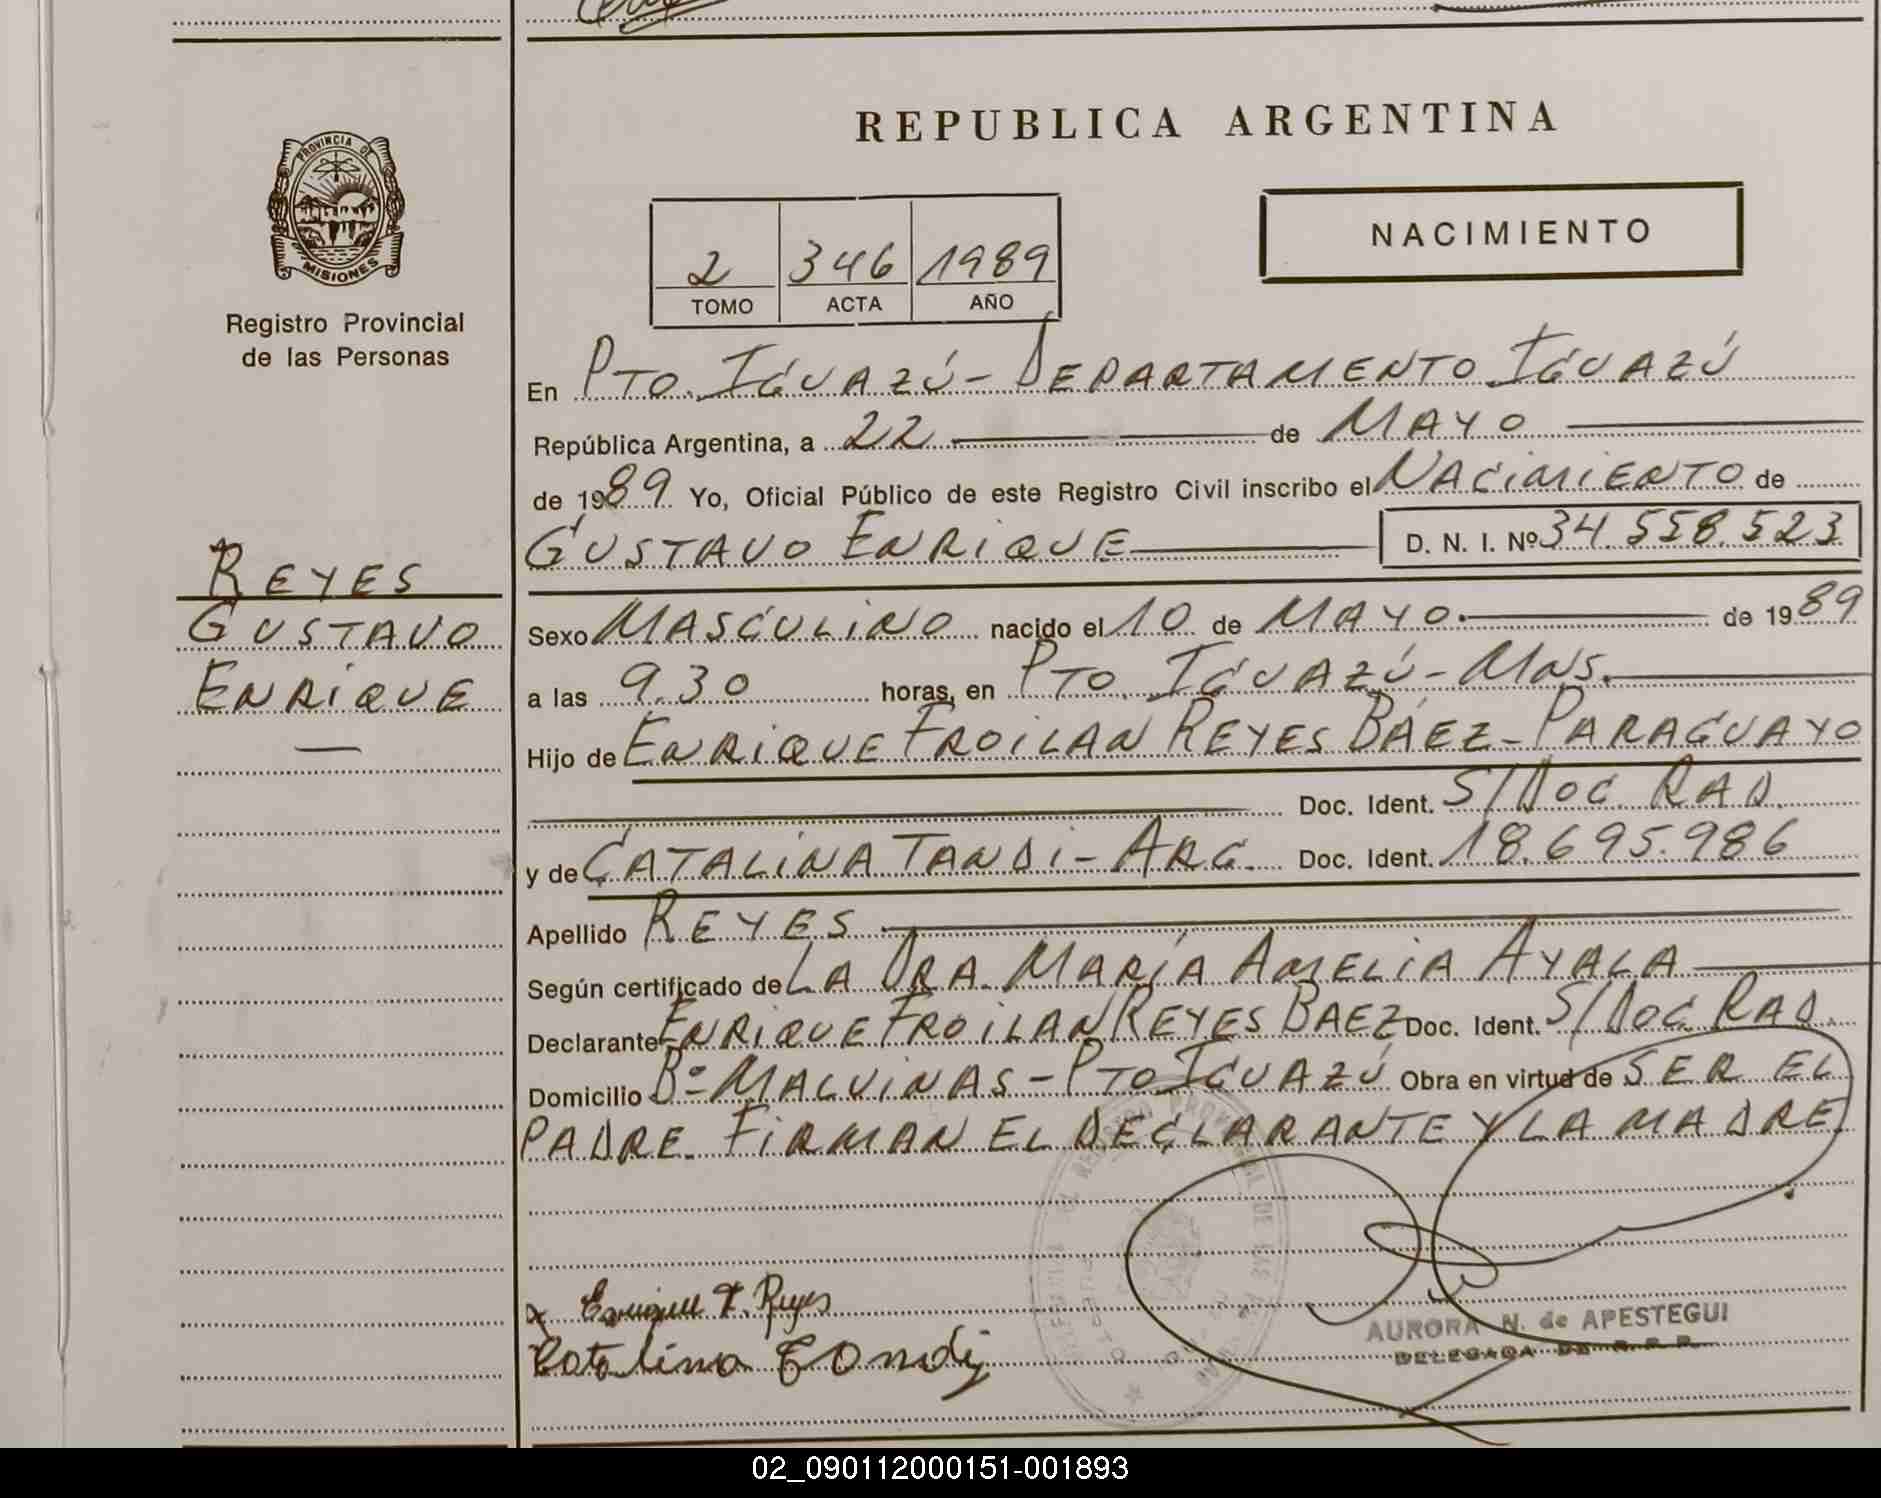 REPUBLICA ARGENTINA
PROVINCIA DE
MISIONES
Registro Provincial
de las Personas
NACIMIENTO
2 346 1989
TOMO ACTA AÑO
En PTO. IGUAZÚ - DEPARTAMENTO IGUAZÚ
República Argentina, a 22 de MAYO
de 1989 Yo, Oficial Público de este Registro Civil inscribo el NACIMIENTO de
GUSTAVO ENRIQUE D. N. I. Nº 34.558.523
REYES
GUSTAVO
ENRIQUE
Sexo MASCULINO nacido el 10 de MAYO. de 1989
a las 9.30 horas, en PTO. IGUAZÚ - MNS.
Hijo de ENRIQUE FROILAN REYES BÁEZ - PARAGUAYO
Doc. Ident. S/DOC. RAD.
y de CATALINA TANDI - ARG. Doc. Ident. 18.695.986
Apellido REYES
Según certificado de LA DRA. MARÍA AMELIA AYALA
Declarante ENRIQUE FROILAN REYES BAEZ Doc. Ident. S/DOC RAD.
Domicilio Bº MALVINAS - PTO IGUAZÚ Obra en virtud de SER EL
PADRE. FIRMAN EL DECLARANTE Y LA MADRE.
x Enrique F. Reyes
Catalina Tondi
AURORA N. de APESTEGUI
DELEGADA DE R. P. P.
02_090112000151-001893